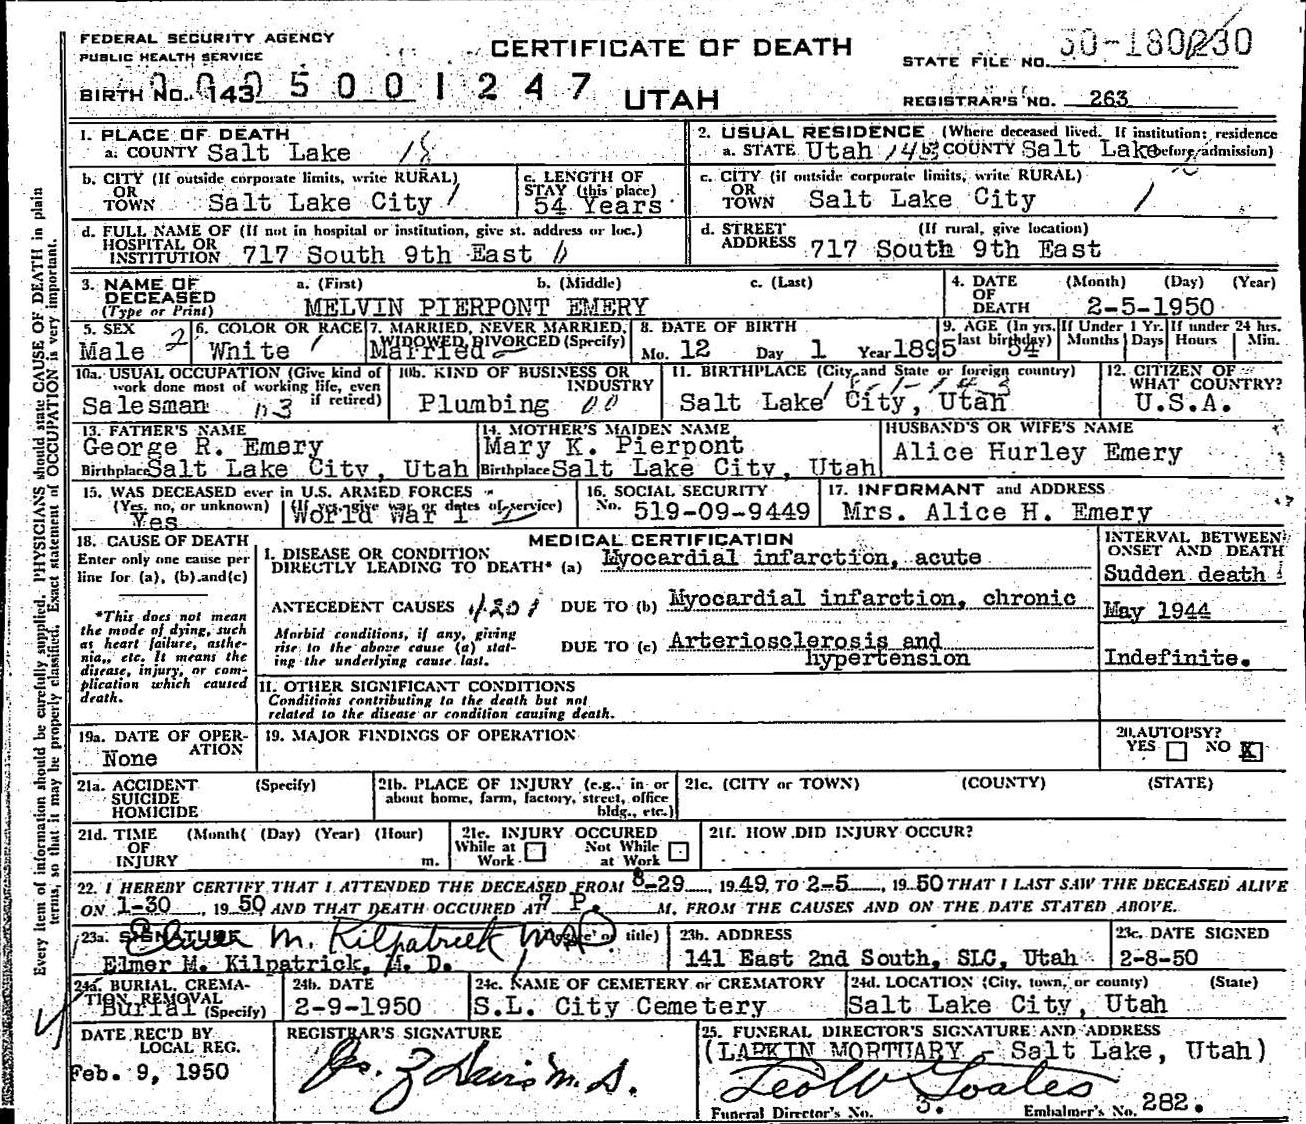 FEDERAL SECURITY AGENCY
PUBLIC HEALTH SERVICE
CERTIFICATE OF DEATH
STATE FILE NO.
BIRTH NO. 143 5 0 0 1 2 4 7
UTAH
REGISTRAR'S NO. 263
1. PLACE OF DEATH
a. COUNTY Salt Lake 18
2. USUAL RESIDENCE (Where deceased lived. If institution: residence
a. STATE Utah b. COUNTY Salt Lake before admission)
b. CITY (If outside corporate limits, write RURAL)
OR
TOWN Salt Lake City
c. LENGTH OF
STAY (this place)
54 Years
c. CITY (if outside corporate limits, write RURAL)
OR
TOWN Salt Lake City
d. FULL NAME OF (If not in hospital or institution, give st. address or loc.)
HOSPITAL OR
INSTITUTION 717 South 9th East
d. STREET (If rural, give location)
ADDRESS 717 South 9th East
3. NAME OF a. (First) b. (Middle) c. (Last)
DECEASED
(Type or Print) MELVIN PIERPONT EMERY
4. DATE (Month) (Day) (Year)
OF
DEATH 2-5-1950
5. SEX
Male 2
6. COLOR OR RACE
White 1
7. MARRIED, NEVER MARRIED,
WIDOWED, DIVORCED (Specify)
Married
8. DATE OF BIRTH
Mo. 12 Day 1 Year 1895
9. AGE (In yrs. last birthday) 54
If Under 1 Yr. Months Days
If under 24 hrs. Hours Min.
10a. USUAL OCCUPATION (Give kind of
work done most of working life, even
if retired)
Salesman
10b. KIND OF BUSINESS OR
INDUSTRY
Plumbing
11. BIRTHPLACE (City and State or foreign country)
Salt Lake City, Utah
12. CITIZEN OF
WHAT COUNTRY?
U.S.A.
13. FATHER'S NAME
George R. Emery
Birthplace Salt Lake City, Utah
14. MOTHER'S MAIDEN NAME
Mary K. Pierpont
Birthplace Salt Lake City, Utah
HUSBAND'S OR WIFE'S NAME
Alice Hurley Emery
15. WAS DECEASED ever in U.S. ARMED FORCES
(Yes, no, or unknown) (If yes, give war or dates of service)
Yes World War 1
16. SOCIAL SECURITY
No. 519-09-9449
17. INFORMANT and ADDRESS
Mrs. Alice H. Emery
18. CAUSE OF DEATH
Enter only one cause per
line for (a), (b) and (c)
*This does not mean
the mode of dying, such
as heart failure, asthe-
nia, etc. It means the
disease, injury, or com-
plication which caused
death.
MEDICAL CERTIFICATION
I. DISEASE OR CONDITION
DIRECTLY LEADING TO DEATH* (a) Myocardial infarction, acute
ANTECEDENT CAUSES 4201 DUE TO (b) Myocardial infarction, chronic
Morbid conditions, if any, giving
rise to the above cause (a) stat-
ing the underlying cause last.
DUE TO (c) Arteriosclerosis and
hypertension
INTERVAL BETWEEN
ONSET AND DEATH
Sudden death
May 1944
Indefinite.
II. OTHER SIGNIFICANT CONDITIONS
Conditions contributing to the death but not
related to the disease or condition causing death.
19a. DATE OF OPER-
ATION
None
19. MAJOR FINDINGS OF OPERATION
20. AUTOPSY?
YES NO X
21a. ACCIDENT (Specify)
SUICIDE
HOMICIDE
21b. PLACE OF INJURY (e.g., in or
about home, farm, factory, street, office
bldg., etc.)
21c. (CITY or TOWN) (COUNTY) (STATE)
21d. TIME (Month( (Day) (Year) (Hour)
OF
INJURY m.
21e. INJURY OCCURED
While at Work Not While at Work
21f. HOW DID INJURY OCCUR?
22. I HEREBY CERTIFY THAT I ATTENDED THE DECEASED FROM 8-29, 1949, TO 2-5, 1950 THAT I LAST SAW THE DECEASED ALIVE
ON 1-30, 1950 AND THAT DEATH OCCURED AT 7 P. M. FROM THE CAUSES AND ON THE DATE STATED ABOVE.
23a. SIGNATURE Elmer M. Kilpatrick MD title)
Elmer M. Kilpatrick, M. D.
23b. ADDRESS
141 East 2nd South, SLC, Utah
23c. DATE SIGNED
2-8-50
24a. BURIAL, CREMA-
TION, REMOVAL
Burial (Specify)
24b. DATE
2-9-1950
24c. NAME OF CEMETERY or CREMATORY
S.L. City Cemetery
24d. LOCATION (City, town, or county) (State)
Salt Lake City, Utah
DATE REC'D BY
LOCAL REG.
Feb. 9, 1950
REGISTRAR'S SIGNATURE
25. FUNERAL DIRECTOR'S SIGNATURE AND ADDRESS
(LARKIN MORTUARY - Salt Lake, Utah)
Funeral Director's No. 3. Embalmer's No. 282.
Every item of information should be carefully supplied. PHYSICIANS should state CAUSE OF DEATH in plain
terms, so that it may be properly classified. Exact statement of OCCUPATION is very important.